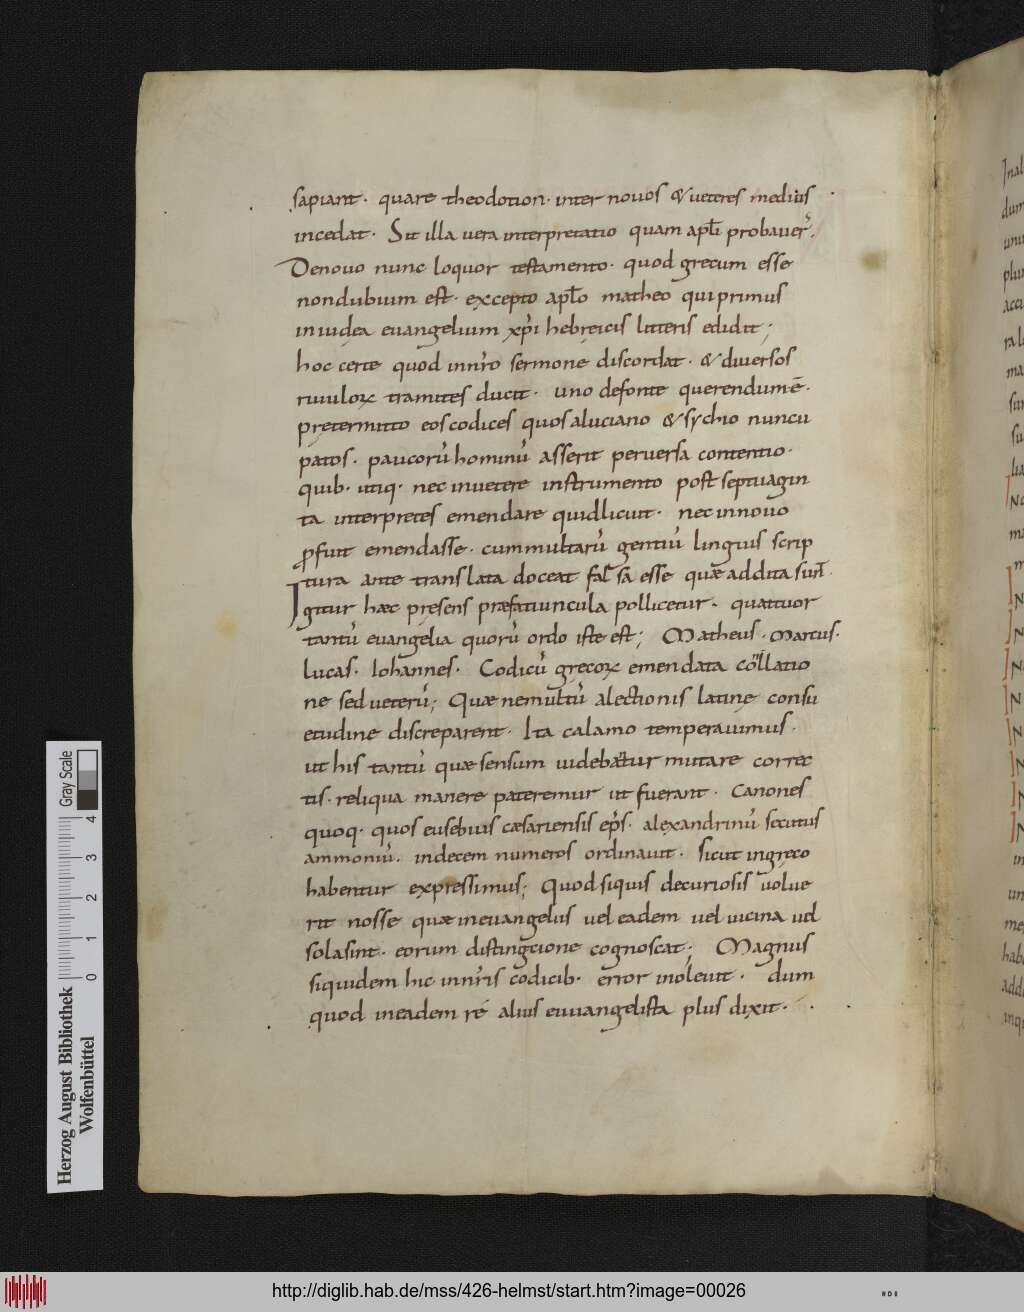 sapiant· quare theodotion· inter novos & veteres medius
incedat· Sit illa vera interpretatio quam apłi probaver̄.
Denovo nunc loquor testamento· quod grecum esse
nondubium est· excepto apło matheo qui primus
iniudęa evangelium xp̄i hebreicis litteris edidit;
hoc certe quod innr̄o sermone discordat· & diversos
rivuloꝝ tramites ducit· uno defonte querendum ē·
pręermitto eos codices quos aluciano & sychio nuncu
patos· paucorū hominū asserit perversa contentio·
quib· utiq· nec inveteré instrumento post septuagin
ta interpretes emendare quid licuit· nec innovo
ꝓfuit emendasse· cum multarū gentiū linguis scrip
tura ante translata doceat falsa esse quæ addita sunt̄·
Igitur hæc pręsens præfatiuncula pollicetur· quattuor
tantū evangelia quorū ordo iste est; Matheus· Marcus·
lucas· Iohannes· Codicū gręcoꝝ emendata collatio
ne sed veterū; Quæ ne multū alectionis latinę consu
etudine discreparent· Ita calamo temperavimus·
ut his tantū quæ sensum videbatur mutare correc
tis· reliqua manere pateremur ut fuerant· Canones
quoq· quos eusebius cæsariensis ep̄s· alexandrinū secutus
ammoniū· indecem numeros ordinavit· sicut ingreco
habentur expressimus; Quod siquis decuriosis volue
rit nosse quæ inevangeliis vel eadem vel vicina vel
sola sint· eorum distingcione cognoscat; Magnus
siquidem hic innr̄is codicib· error inolevit· dum
quod ineadem rē alius euvangelista plus dixit·
Herzog August Bibliothek
Wolfenbüttel
0 1 2 3 4
Gray Scale
http://diglib.hab.de/mss/426-helmst/start.htm?image=00026